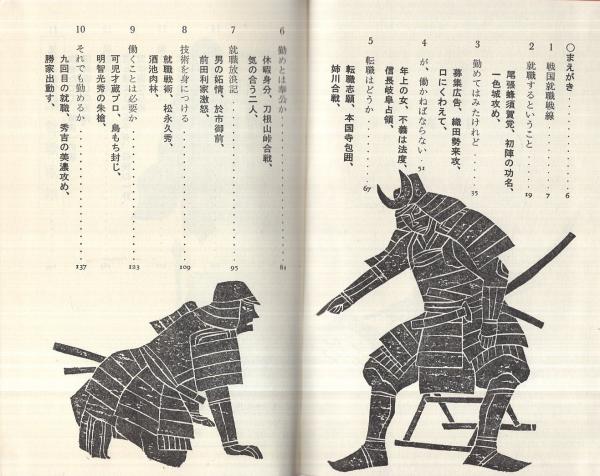 ○まえがき・・・・・・・・6
1 戦国就職戦線・・・・・7
尾張蜂須賀党、初陣の功名、
一色城攻め、
2 就職するということ・・・・19
3 勤めてはみたけれど・・・・35
募集広告、織田勢来攻、
口にくわえて、
4 が、働かねばならない・・51
年上の女、不義は法度、
信長岐阜占領、
5 転職はどうか・・・・・67
転職志願、本国寺包囲、
姉川合戦、
6 勤めとは奉公か・・・・・81
休暇身分、刀根山峠合戦、
気の合う二人、
7 就職放浪記・・・・・95
男の妬情、於市御前、
前田利家激怒、
8 技術を身につける・・・・・109
就職戦術、松永久秀、
酒池肉林、
9 働くことは必要か・・・・・123
可児才蔵プロ、鳥もち封じ、
明智光秀の朱槍、
10 それでも勤めるか・・・・・137
九回目の就職、秀吉の美濃攻め、
勝家出動す、